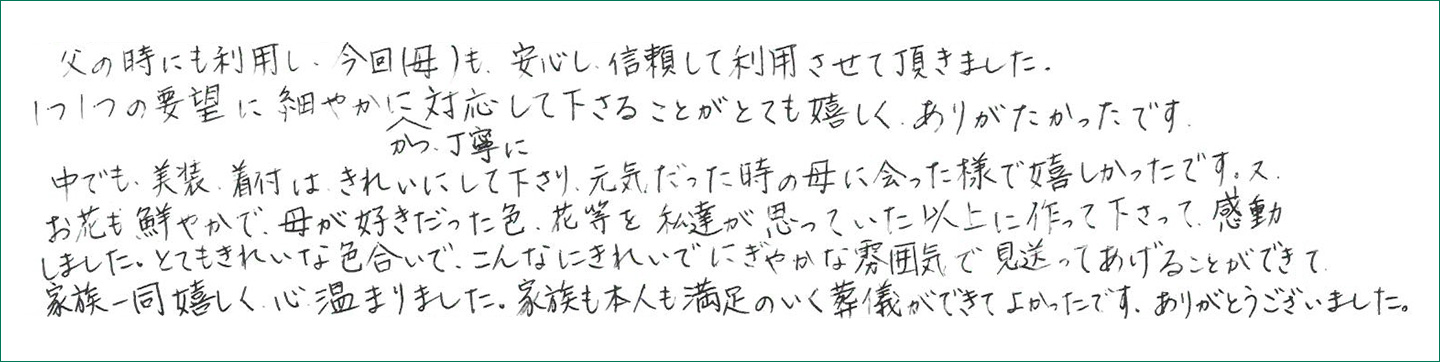 父の時にも利用し、今回(母)も、安心し、信頼して利用させて頂きました。
1つ1つの要望に細やかに対応して下さることがとても嬉しく、ありがたかったです。
かつ、丁寧に
中でも、美装、着付は、きれいにして下さり、元気だった時の母に会った様で嬉しかったです。又、
お花も鮮やかで、母が好きだった色、花等を私達が思っていた以上に作って下さって、感動
しました。とてもきれいな色合いで、こんなにきれいでにぎやかな雰囲気で見送ってあげることができて、
家族一同嬉しく、心温まりました。家族も本人も満足のいく葬儀ができてよかったです、ありがとうございました。